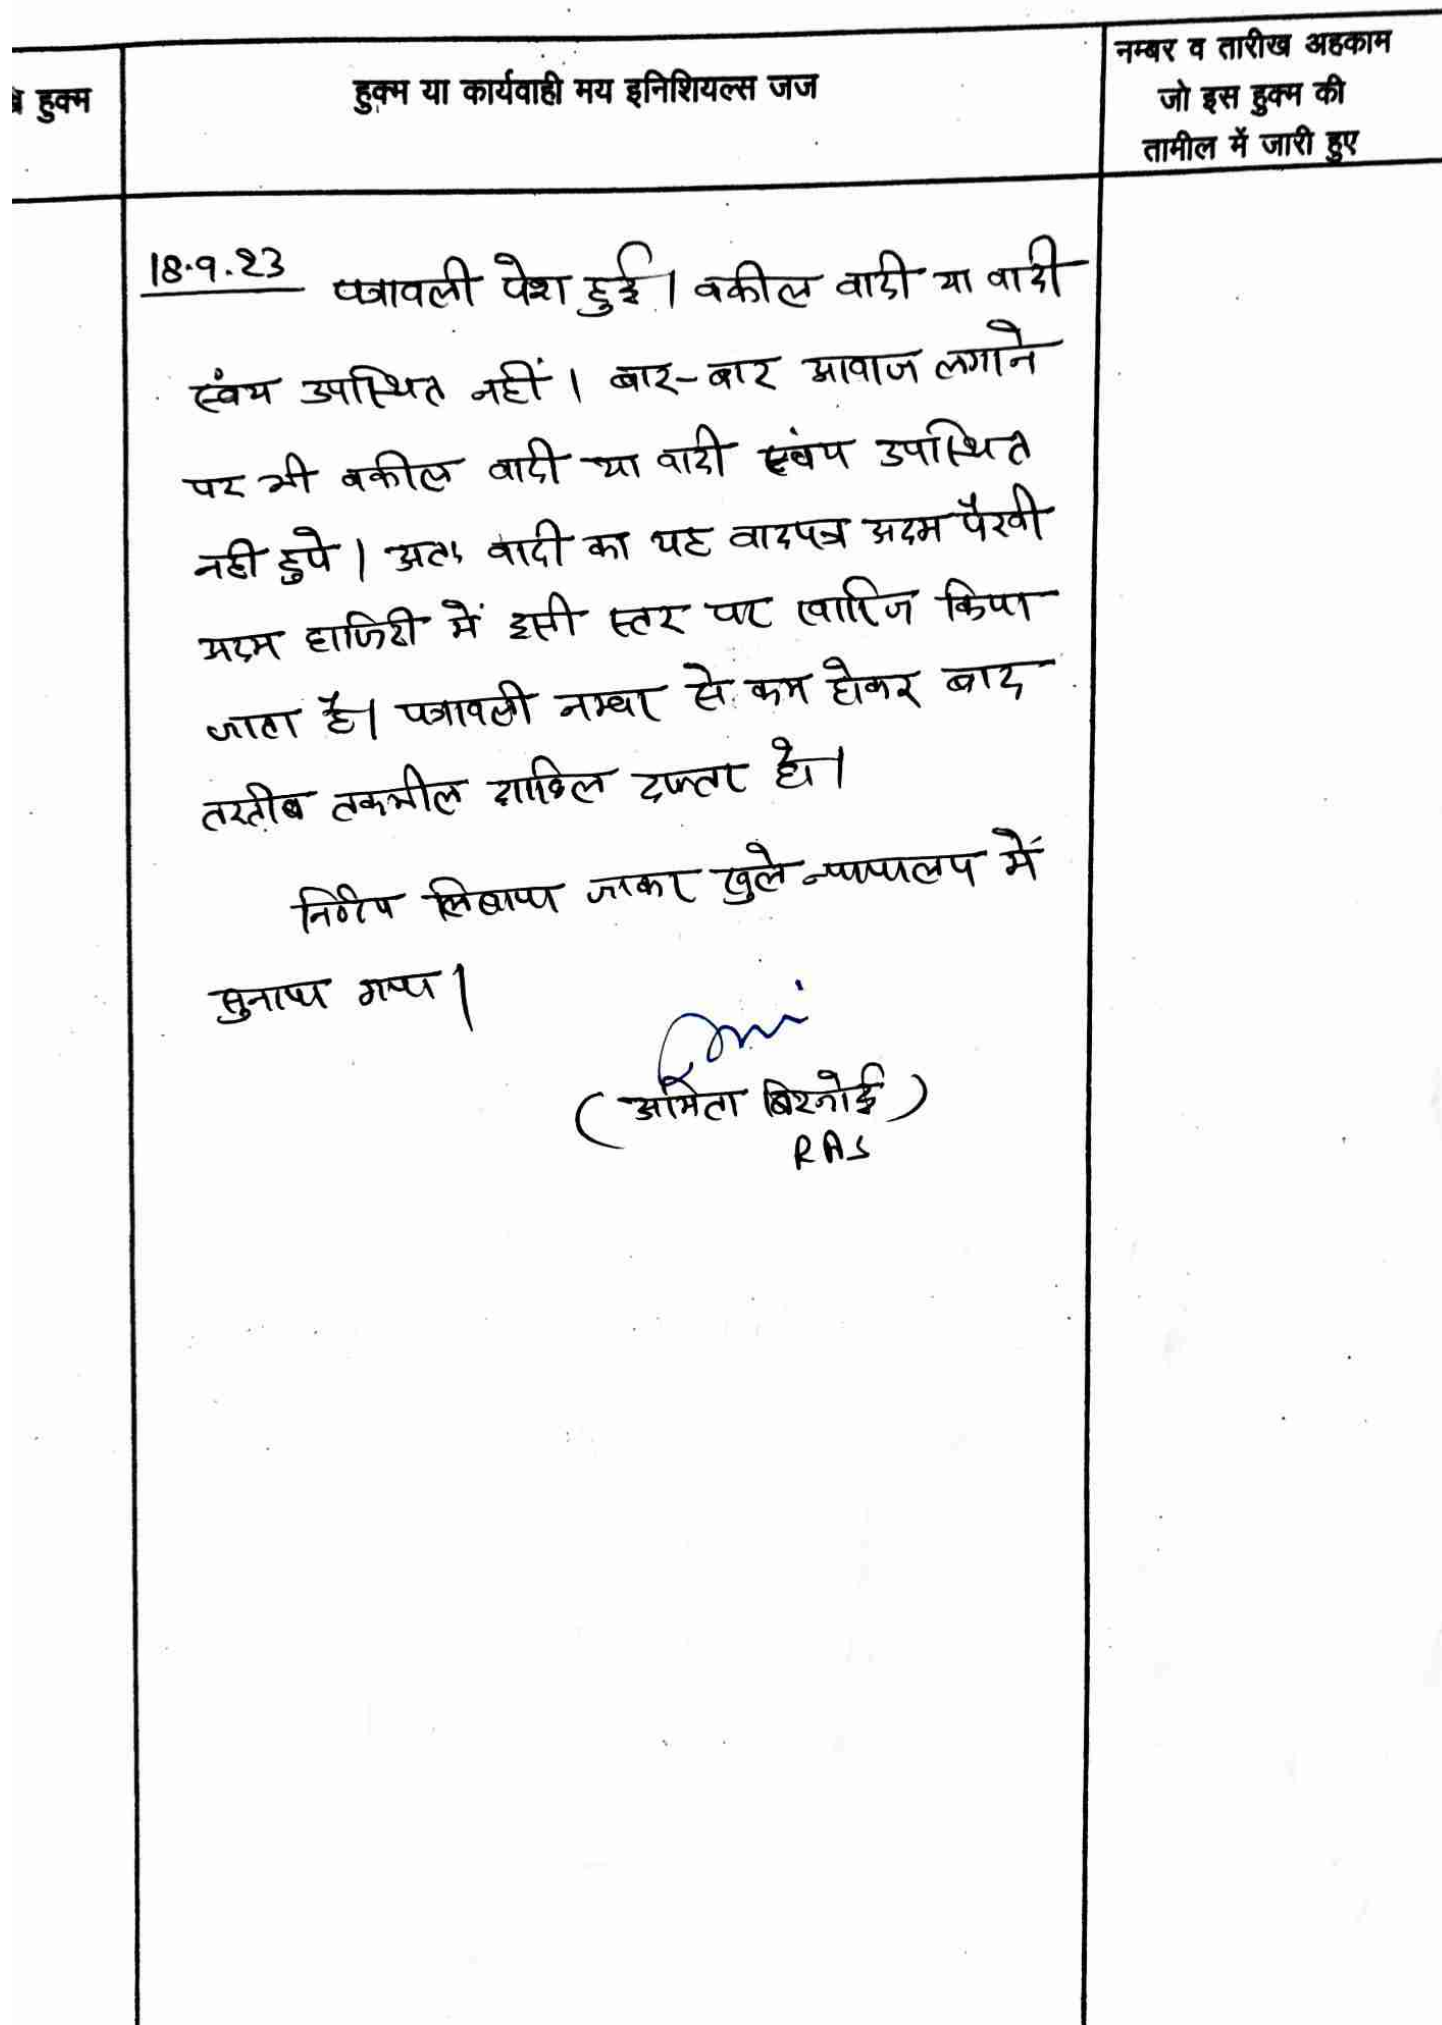 हुक्म
हुक्म या कार्यवाही मय इनिशियल्स जज
नम्बर व तारीख अहकाम
जो इस हुक्म की
तामील में जारी हुए
18.9.23 पत्रावली पेश हुई। वकील वादी या वादी
स्वंय उपस्थित नहीं। बार-बार आवाज लगाने
पर भी वकील वादी या वादी स्वंय उपस्थित
नही हुये। अतः वादी का यह वादपत्र अदम पैरवी
अदम हाजिरी में इसी स्तर पर खारिज किया
जाता है। पत्रावली नम्बर से कम होकर बाद
तरतीब तकमील दाखिल दफ्तर हो।
निर्णय लिखाया जाकर खुले न्यायालय में
सुनाया गया।
(अमिता बिश्नोई)
RAS